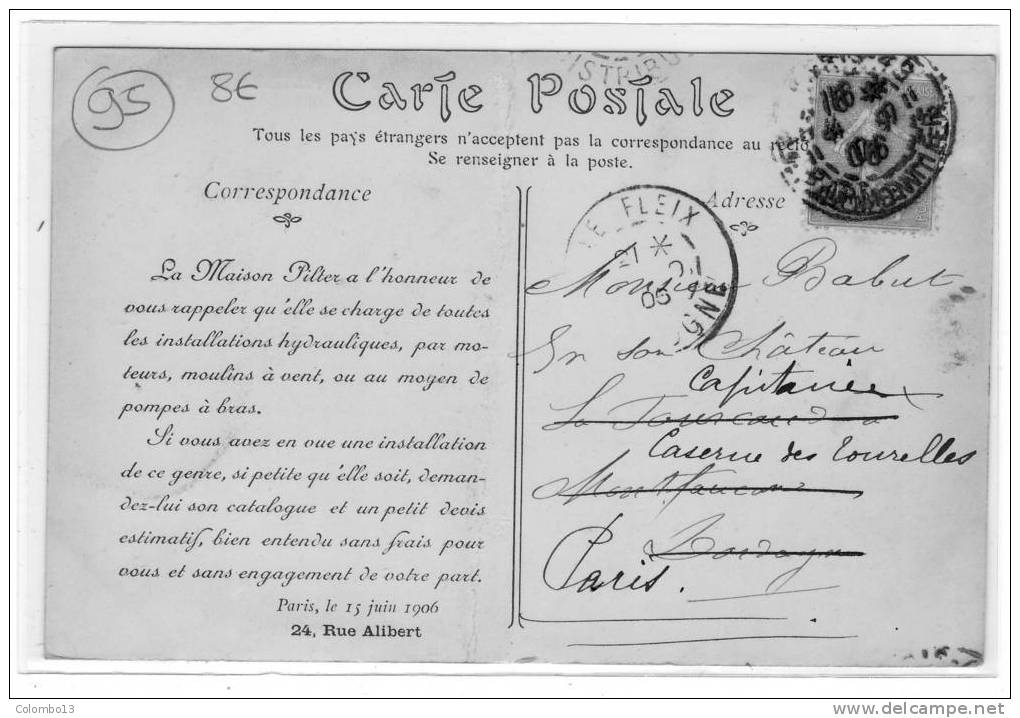 95
8€
DISTRIBU
Carte Postale
Tous les pays étrangers n'acceptent pas la correspondance au recto
Se renseigner à la poste.
Correspondance
La Maison Pilter a l'honneur de
vous rappeler qu'elle se charge de toutes
les installations hydrauliques, par mo-
teurs, moulins à vent, ou au moyen de
pompes à bras.
Si vous avez en vue une installation
de ce genre, si petite qu'elle soit, deman-
dez-lui son catalogue et un petit devis
estimatif, bien entendu sans frais pour
vous et sans engagement de votre part.
Paris, le 15 juin 1906
24, Rue Alibert
Adresse
LE FLEIX
Monsieur Babut
En son Château
Capitaine
Caserne des Tourelles
Montfaucon
Paris.
Colombo13
www.delcampe.net